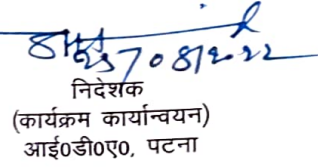 25/08/2022
निदेशक
(कार्यक्रम कार्यान्वयन)
आई0डी0ए0, पटना